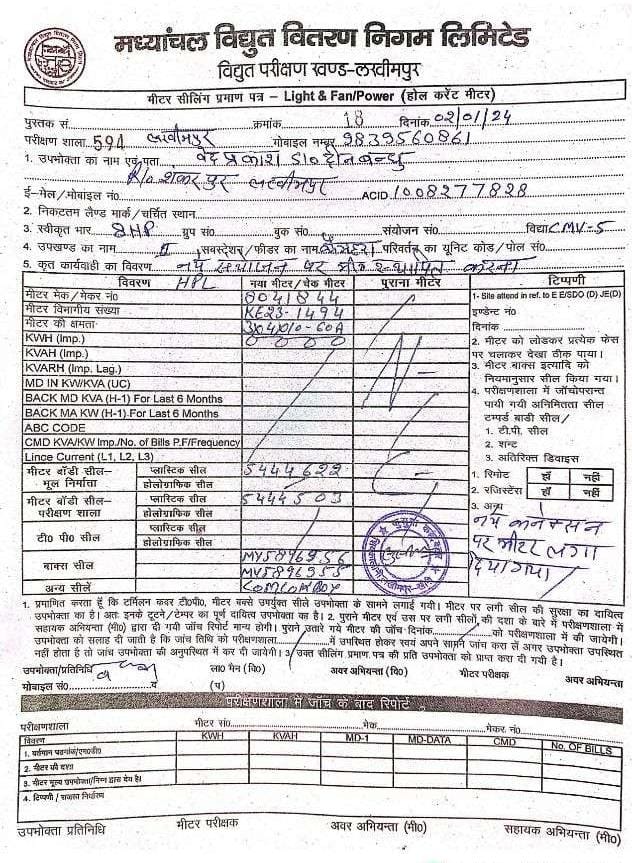 मध्यांचल विद्युत वितरण निगम लिमिटेड
विद्युत परीक्षण खण्ड-लखीमपुर
मीटर सीलिंग प्रमाण पत्र – Light & Fan/Power (होल करेंट मीटर)
पुस्तक सं क्रमांक 18 दिनांक 02/01/24
परीक्षण शाला 594 लखीमपुर मोबाइल नम्बर 9839560861
1. उपभोक्ता का नाम एवं पता वेद प्रकाश S/o दीनबन्धु
R/o शंकरपुर लखीमपुर
ई-मेल/मोबाइल नं० ACID 1008277828
2. निकटतम लैण्ड मार्क/चर्चित स्थान
3. स्वीकृत भार 8HP ग्रुप सं० बुक सं० संयोजन सं० विद्या CMV-5
4. उपखण्ड का नाम II सबस्टेशन/फीडर का नाम परिवर्तक का यूनिट कोड/पोल सं०
5. कृत कार्यवाही का विवरण नये संयोजन पर मीटर स्थापित करना
विवरण HPL नया मीटर/चेक मीटर पुराना मीटर टिप्पणी
मीटर मेक/मेकर नं० 8041844
मीटर विभागीय संख्या KE23-1494
मीटर की क्षमता 3/04/0/0-60A
KWH (Imp.) 0 0 0 0
KVAH (Imp.)
KVARH (Imp. Lag.)
MD IN KW/KVA (UC)
BACK MD KVA (H-1) For Last 6 Months
BACK MA KW (H-1) For Last 6 Months
ABC CODE
CMD KVA/KW Imp./No. of Bills P.F/Frequency
Lince Current (L1, L2, L3)
मीटर बॉडी सील– मूल निर्माता प्लास्टिक सील 5444622
होलोग्राफिक सील
मीटर बॉडी सील– परीक्षण शाला प्लास्टिक सील 5444503
होलोग्राफिक सील
टी० पी० सील प्लास्टिक सील
होलोग्राफिक सील
बाक्स सील MY5896956
MY5896955
अन्य सीलें COMCOMBOX
N-
1- Site attend in ref. to E E/SDO (D) JE(D)
इण्डेन्ट नं०
दिनांक
2. मीटर को लोडकर प्रत्येक फेस
पर चलाकर देखा ठीक पाया।
3. मीटर बाक्स इत्यादि को
नियमानुसार सील किया गया।
4. परीक्षणशाला में जाँचोपरान्त
पायी गयी अनिमितता सील
टम्पर्ड बाडी सील/
1. टी.पी. सील
2. शन्ट
3. अतिरिक्त डिवाइस
1. रिमोट हाँ नहीं
2. रजिस्टेंस हाँ नहीं
3. अन्य
नये कनेक्सन
पर मीटर लगा
दिया गया।
1. प्रमाणित करता हूँ कि टर्मिलन कदर टी०पी०, मीटर बक्से उपर्युक्त सीले उपभोक्ता के सामने लगाई गयी। मीटर पर लगी सील की सुरक्षा का दायित्व
उपभोक्ता का है। अतः इनके टूटने/टेम्पर का पूर्ण दायित्व उपभोक्ता का है। 2. पुराने मीटर एवं उस पर लगी सीलों की दशा के बारे में परीक्षणशाला में
सहायक अभियन्ता (मी०) द्वारा दी गयी जाँच रिपोर्ट मान्य होगी। पुराने उतारे गये मीटर की जाँच दिनांक को परीक्षणशाला में की जायेगी।
उपभोक्ता को सलाह दी जाती है कि जांच तिथि को परीक्षणशाला में उपस्थित होकर स्वयं अपने सामने जांच करा लें अगर उपभोक्ता उपस्थित
नहीं होता है तो जांच उपभोक्ता की अनुपस्थित में कर दी जायेगी। 3. उक्त सीलिंग प्रमाण पत्र की प्रति उपभोक्ता को प्राप्त करा दी गयी है।
उपभोक्ता/प्रतिनिधि ला० मैन (वि०) अवर अभियन्ता (वि०) मीटर परीक्षक अवर अभियन्ता
मोबाइल सं० व (प)
परीक्षणशाला में जांच के बाद रिपोर्ट
परीक्षणशाला मीटर सं० मेक मेकर नं०
विवरण KWH KVAH MD-1 MD-DATA CMD No. OF BILLS
1. वर्तमान पठनांक/एम०डी०
2. मीटर की दशा
3. मीटर मूल्य उपभोक्ता/निगम द्वारा देय है।
4. टिप्पणी / राजस्व निर्धारण
उपभोक्ता प्रतिनिधि मीटर परीक्षक अवर अभियन्ता (मी०) सहायक अभियन्ता (मी०)